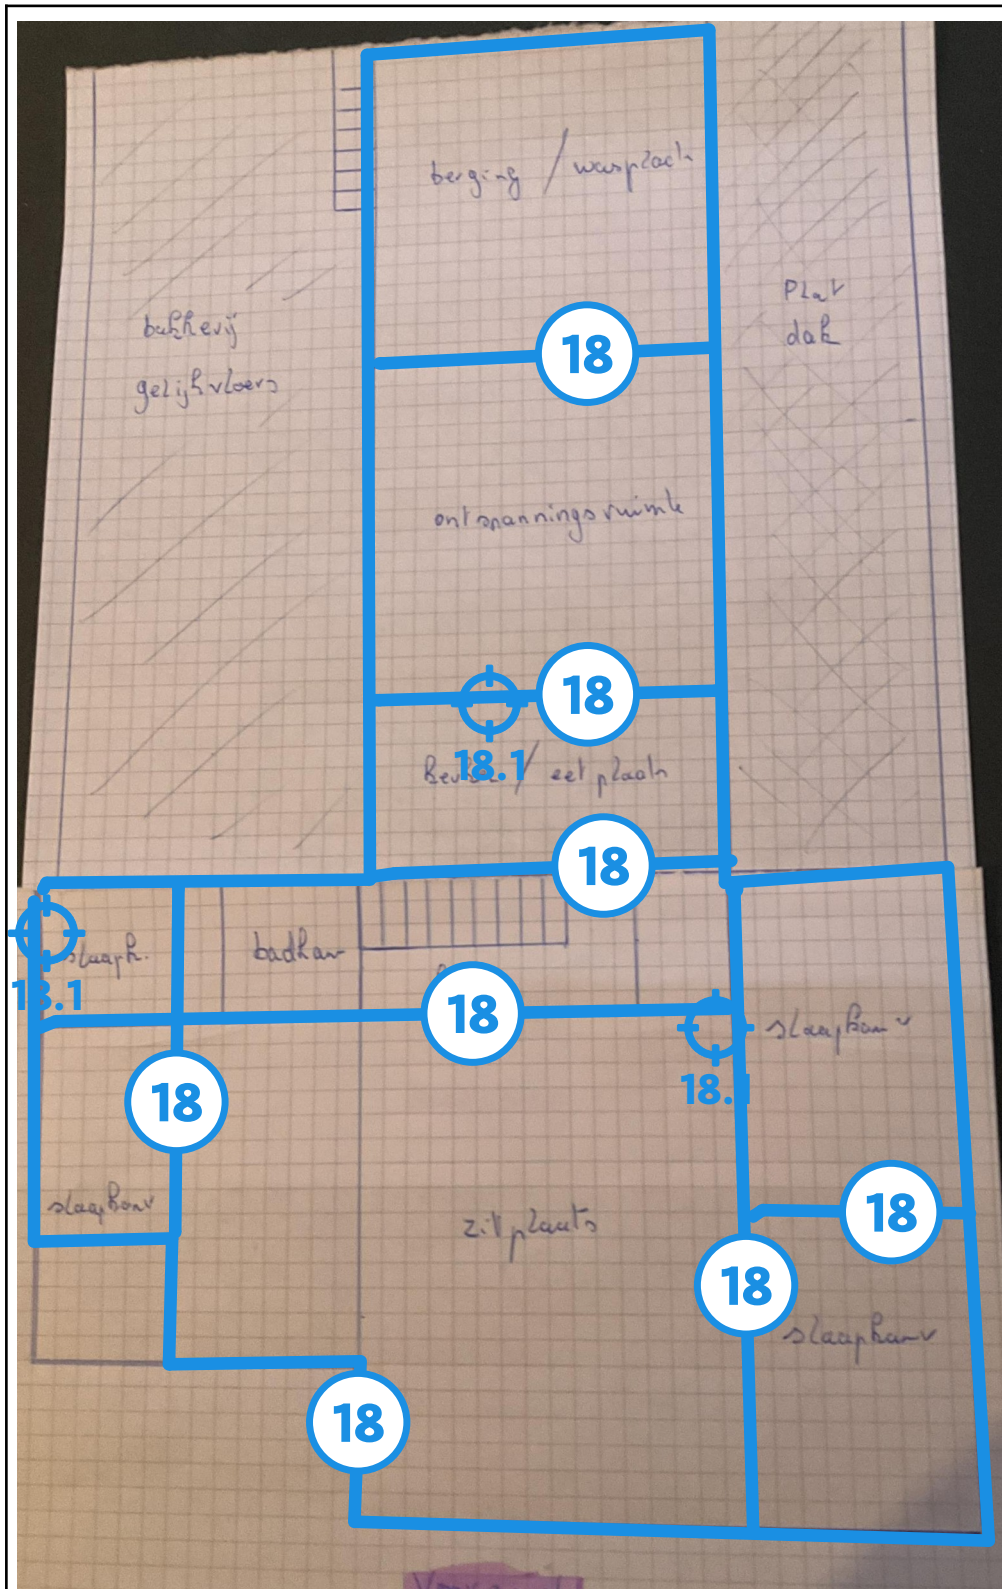 berging / wasplaats
Plat
dak
bakkerij
gelijkvloers
18
ontspanningsruimte
18
18.1
/ eetplaats
18
slaapk.
badkam
18.1
18
slaapkamr
18.1
18
slaapkamr
zitplaats
18
18
slaapkamr
18